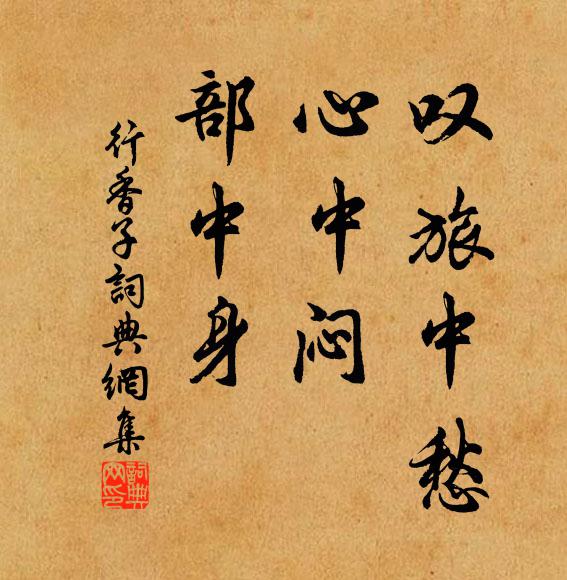 叹旅中愁
心中闷
部中身
行香子詞典網集
詞典网印